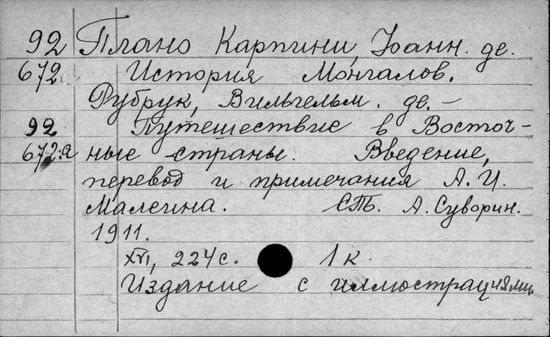 92 Плано Карпини, Иоанн. де.
672. История Монгалов.
Рубрук, Вильгельм. де. –
92 Путешествие в Восточ-
672а ные страны. Введение,
перевод и примечания А. И.
Малеина. СПб. А. Суворин.
1911.
XVI, 224 с. 1 к.
Издание с иллюстрациями